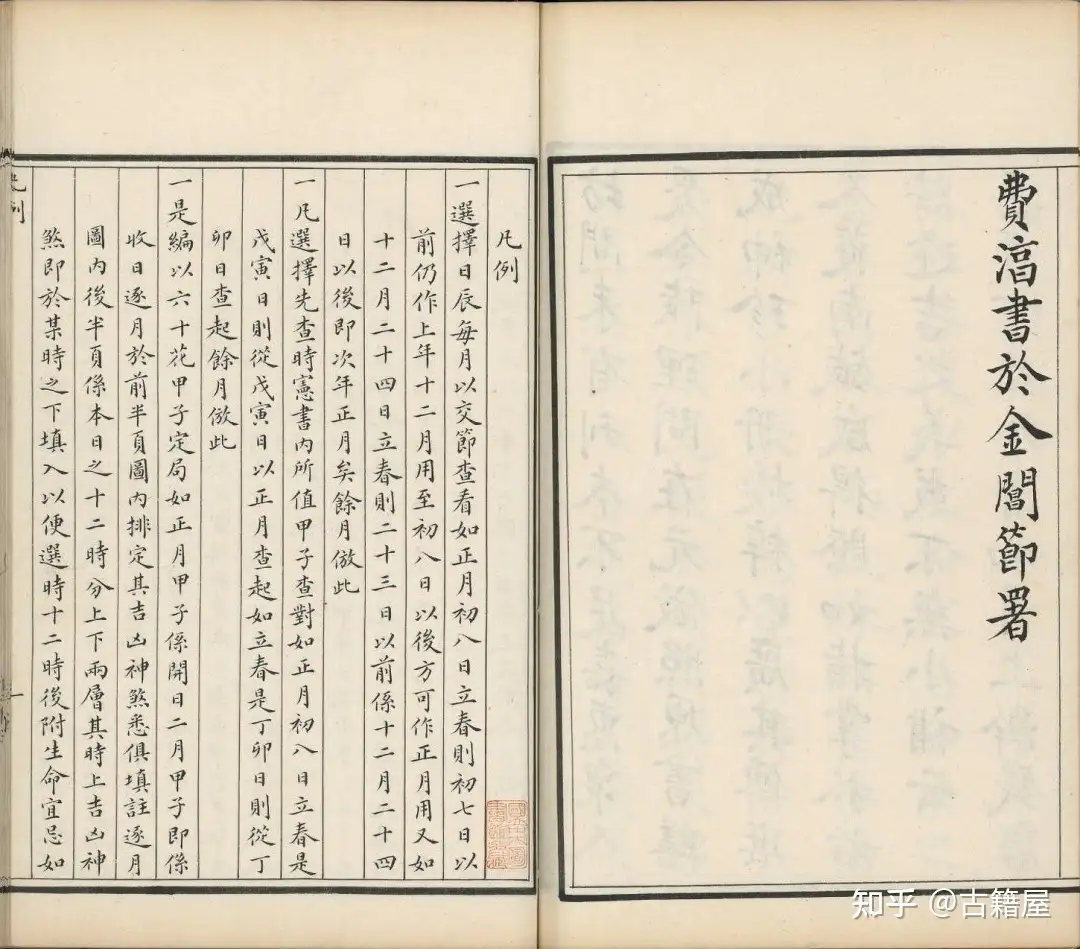 費淳書於金閶節署
凡例
一選擇日辰每月以交節查看如正月初八日立春則初七日以
前仍作上年十二月用至初八日以後方可作正月用又如
十二月二十四日立春則二十三日以前係十二月二十四
日以後即次年正月矣餘月倣此
一凡選擇先查時憲書內所值甲子查對如正月初八日立春是
戊寅日則從戊寅日以正月查起如立春是丁卯日則從丁
卯日查起餘月倣此
一是編以六十花甲子定局如正月甲子係開日二月甲子即係
收日逐月於前半頁圖內排定其吉凶神煞悉俱填註逐月
圖內後半頁係本日之十二時分上下兩層其時上吉凶神
煞即於某時之下填入以便選時十二時後附生命宜忌如
凡例
一
知乎 @古籍屋